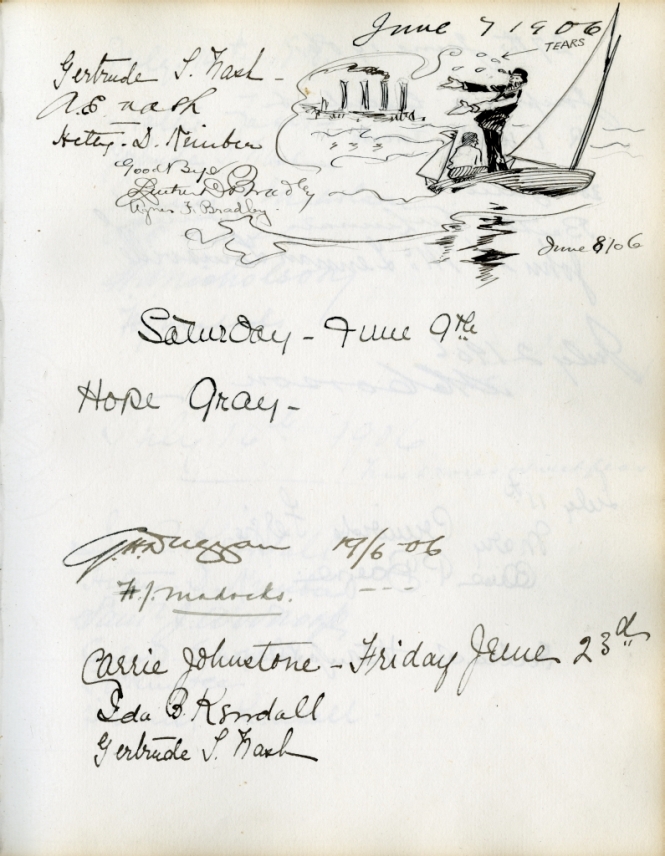 June 7 1906
TEARS
Gertrude S. Nash -
A.E. Nash
Hetty. D.
Good Bye
Gertrude D. Bradley
Agnes F. Bradley.
June 8/06
Saturday - June 9th
Hope Gray -
G.H. Duggan 17/6-06
H.J. Maddocks. - - -
Carrie Johnstone - Friday June 23d
Ida B. Kendall
Gertrude S. Nash